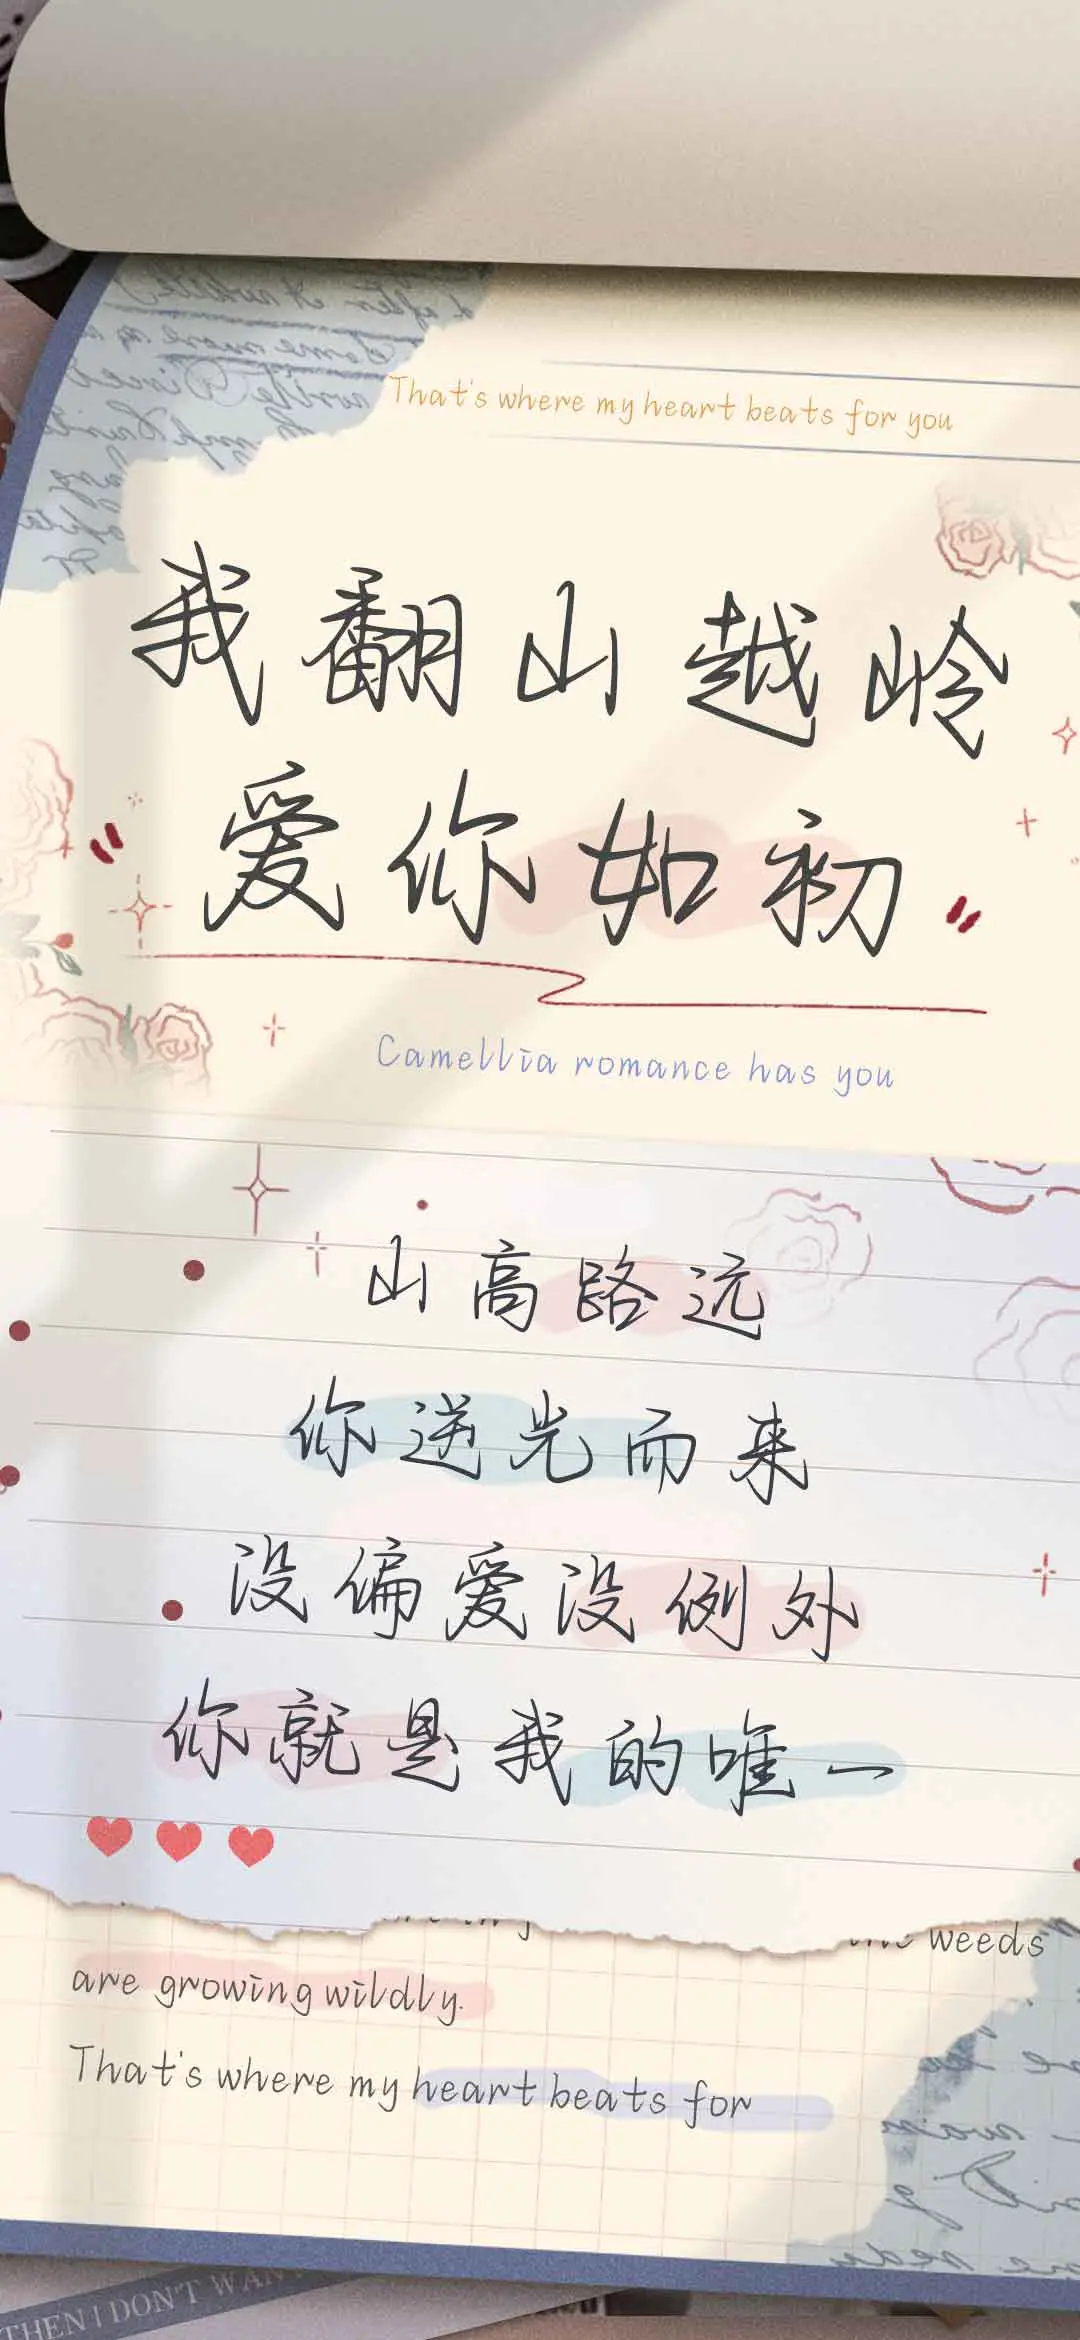 That's where my heart beats for you
我翻山越岭
爱你如初
Camellia romance has you
山高路远
你逆光而来
没偏爱没例外
你就是我的唯一
weeds
are growing wildly.
That's where my heart beats for
THEN I DON'T WAN